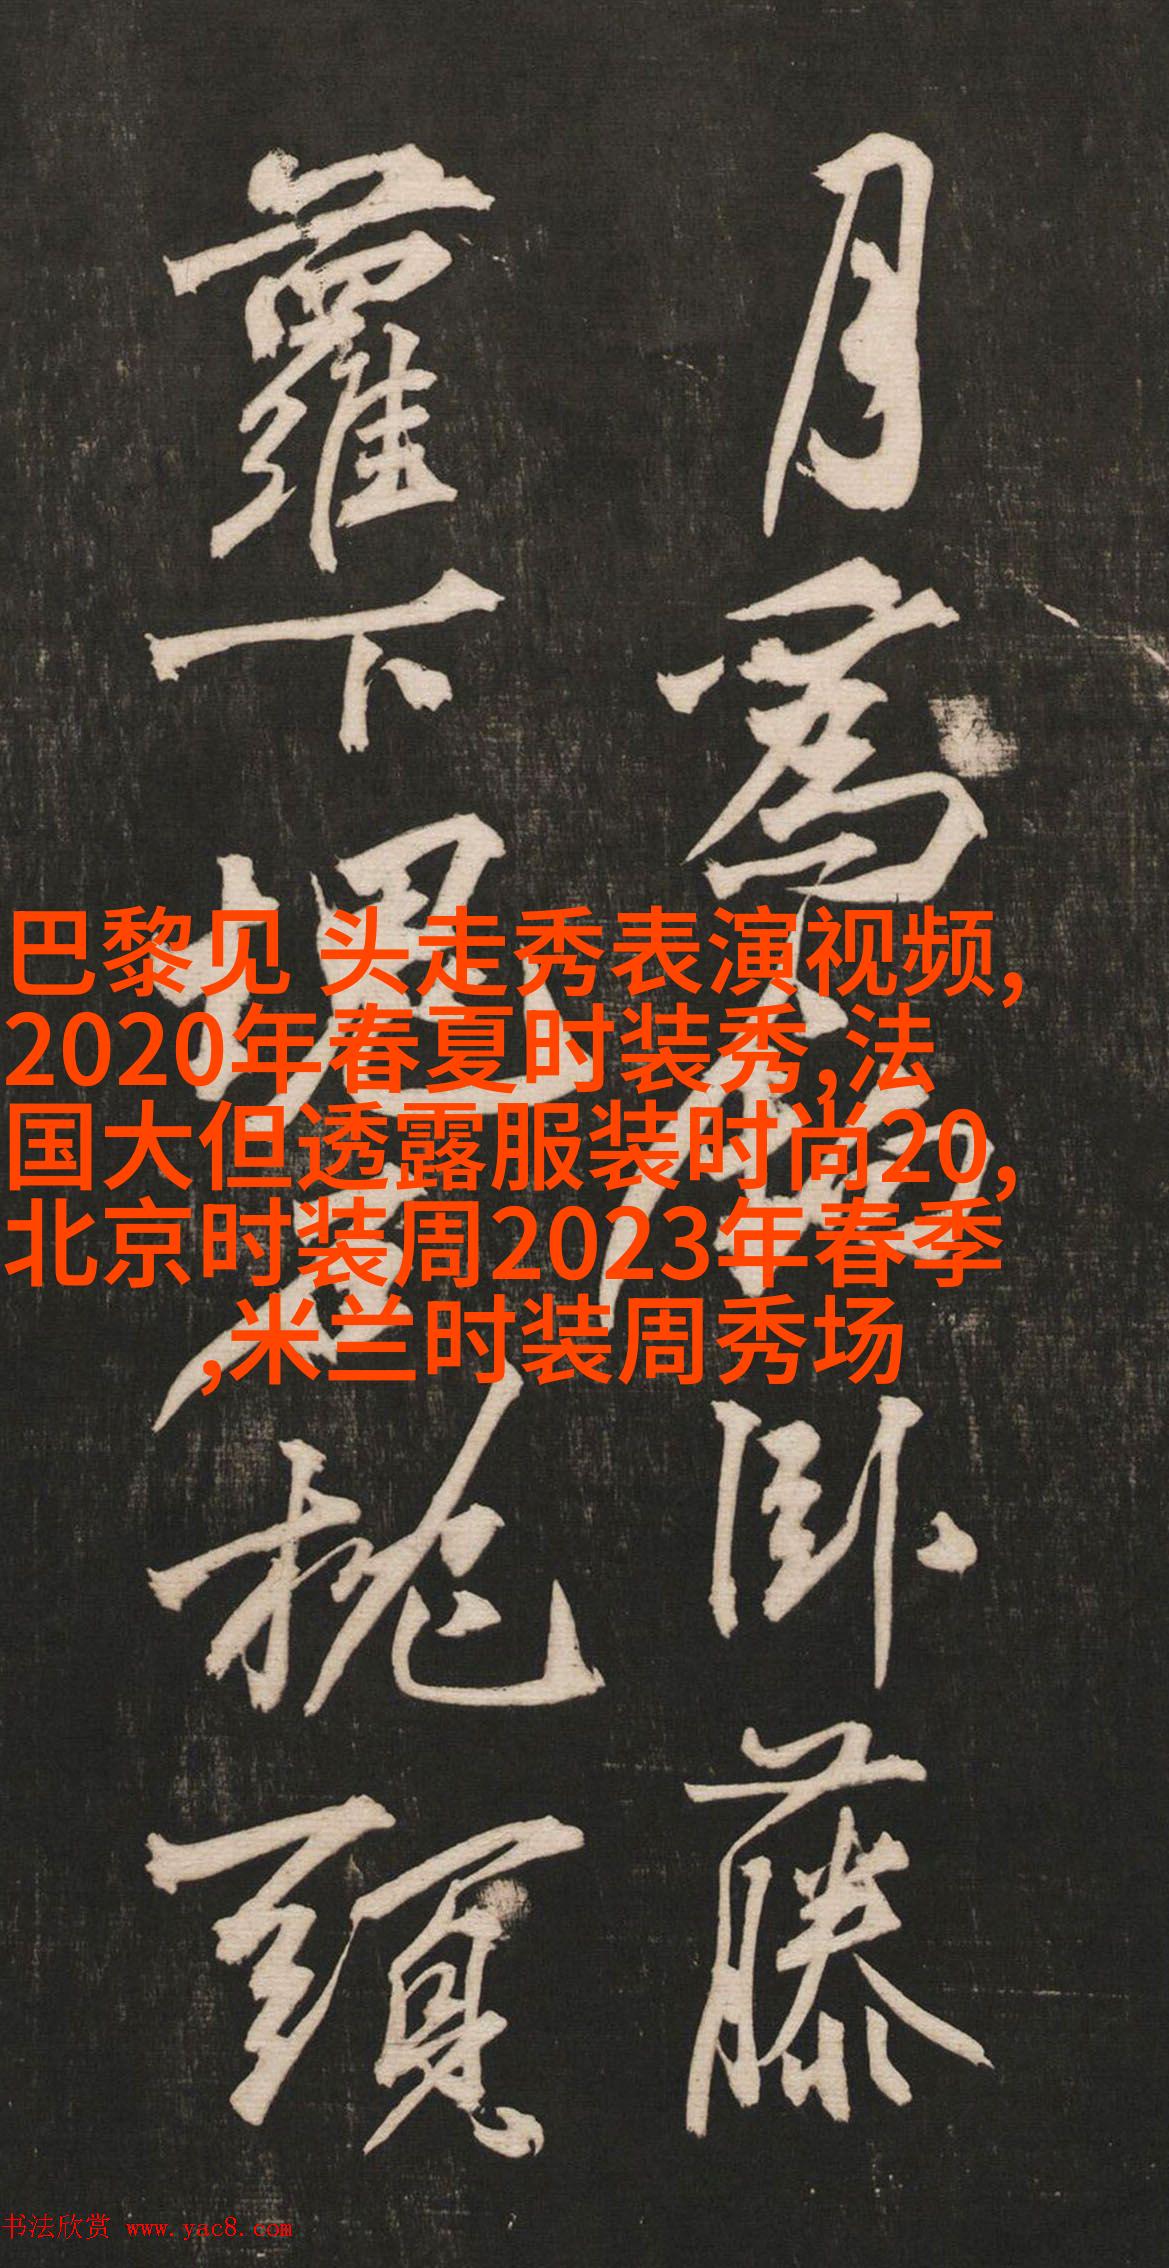 月爲鉤卧藤
蘿下塊石枕頭
巴黎见 头走秀表演视频,
2020年春夏时装秀,法
国大但透露服装时尚20,
北京时装周2023年春季
,米兰时装周秀场
书法欣赏 www.yac8.com